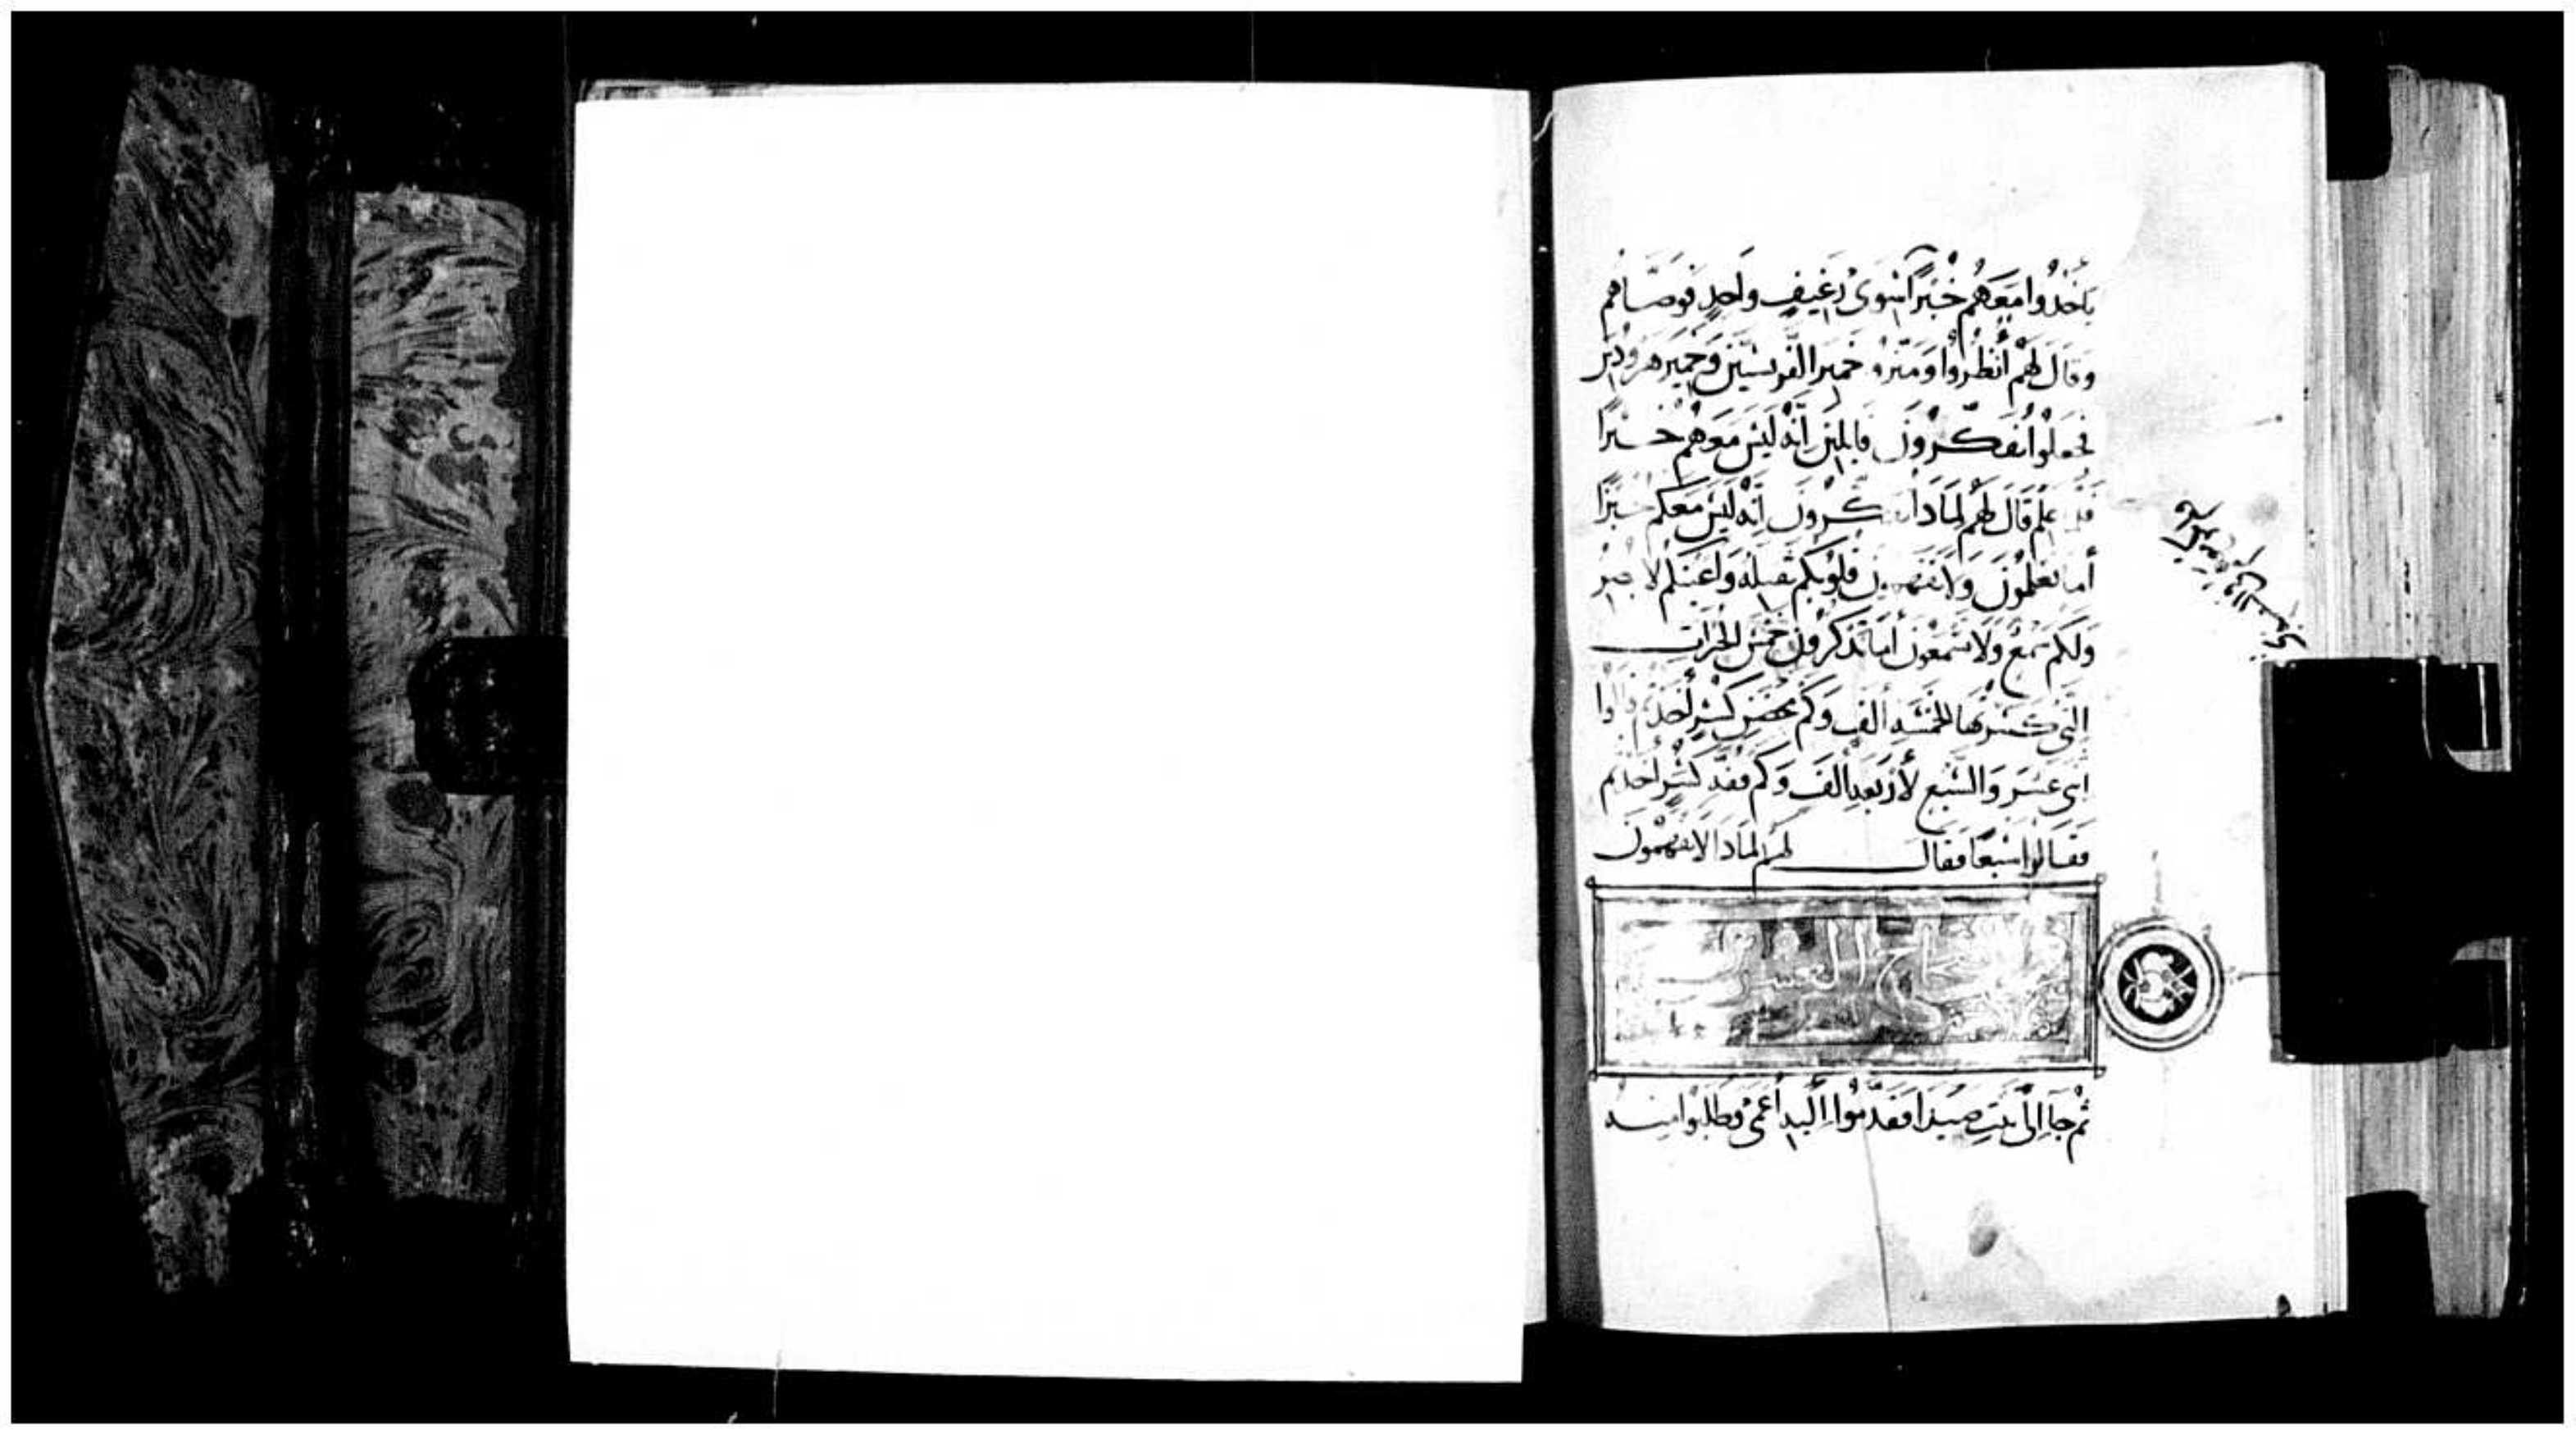 يَأخُذُوا مَعَهُم خُبْزًا سِوى رغيفٍ واحدٍ فوصّاهم
وقال لَهُم أُنظُرُوا وَميّزوا خمير الفَريسيّين وَخمير هرودس
فجعلوا يفكّرون قايلين انّه ليس معهم خبزًا
علم قال لهم لماذا تفكّرون انّه ليس معكم خبزًا
أما تعلمون ولا تفهمون قلوبكم ثقيلة واعينكم لا تبصر
ولكم سمع ولا تسمعون أما تذكرون خمس الخبزات
التي كسرتها لخمسة ألف وكم كسر أخذتم قالوا
اثنى عشر والسّبع لأربعة ألف وكم قفة كسر أخذتم
فقالوا سبعًا فقال لهم لماذا لا تفهمون
ثمّ جآ إلى بيت صيدا فقدّموا إليه أعمى وطلبوا منه